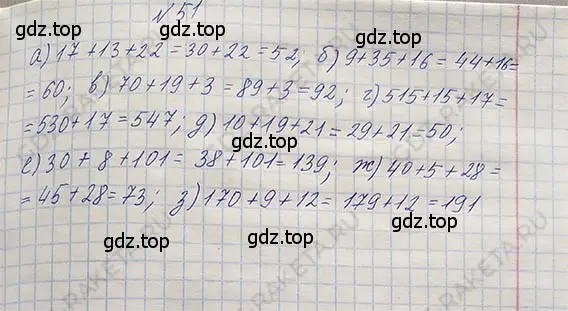 № 51
а) 17+13+22=30+22=52; б) 9+35+16=44+16=
=60; в) 70+19+3=89+3=92; г) 515+15+17=
=530+17=547; д) 10+19+21=29+21=50;
е) 30+8+101=38+101=139; ж) 40+5+28=
=45+28=73; з) 170+9+12=179+12=191
gdz.top
gdz.top gdz.top
gdz.top
gdz.top gdz.top
gdz.top
RAKETA.RU
RAKETA.RU
RAKETA.RU